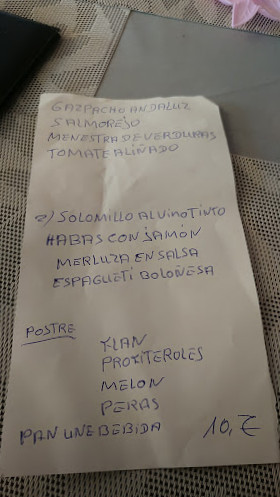 GAZPACHO ANDALUZ
SALMOREJO
MENESTRA DE VERDURAS
TOMATE ALIÑADO
2) SOLOMILLO AL VINO TINTO
HABAS CON JAMÓN
MERLUZA EN SALSA
ESPAGUETI BOLOÑESA
POSTRE
FLAN
PROFITEROLES
MELON
PERAS
PAN UNE BEBIDA 10,€